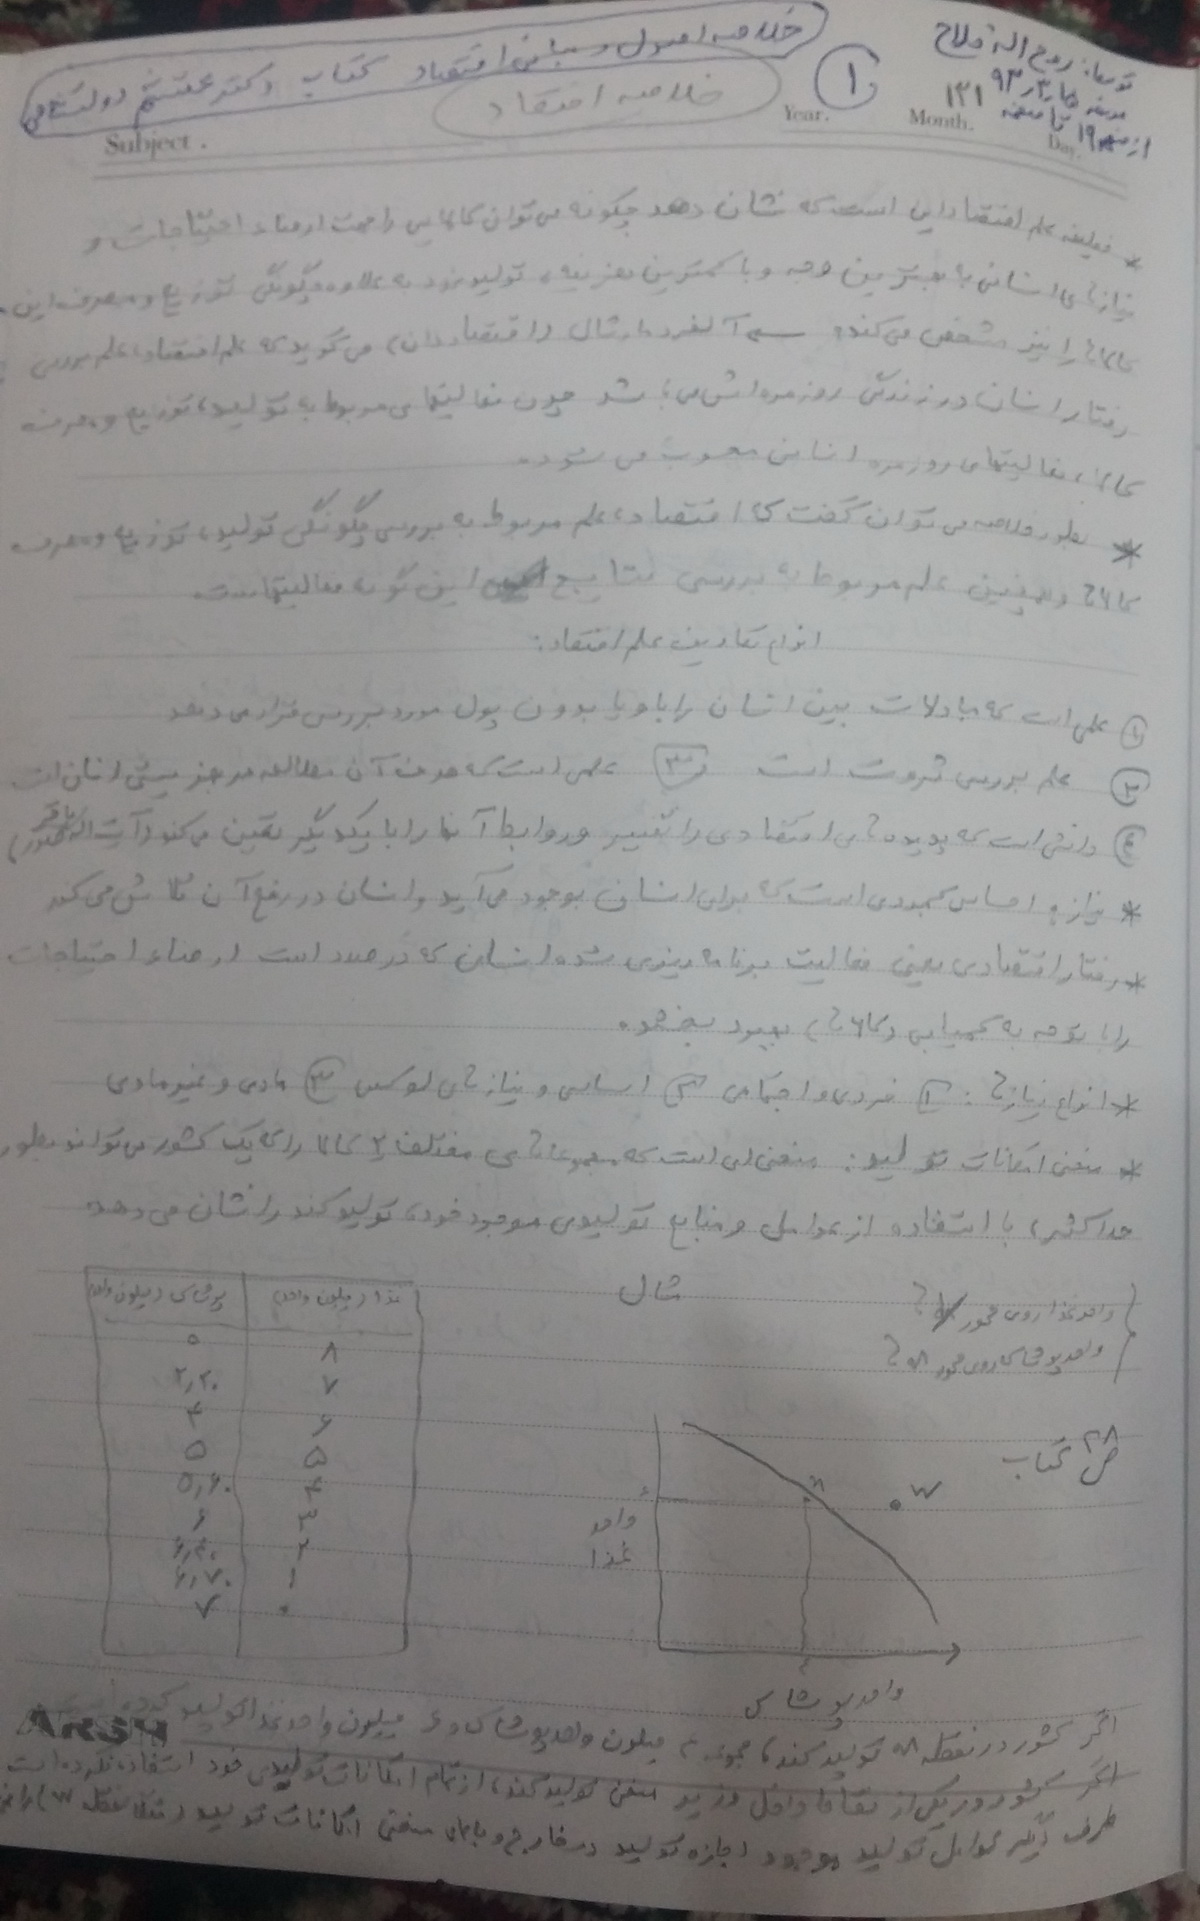 توسط: روح اله فلاح
از صفحه ۱۹ تا صفحه ۱۳۱
۱
خلاصه اصول و مبانی اقتصاد کتاب دکتر
خلاصه اقتصاد
Subject.
Year. Month. Day.
* وظیفه علم اقتصاد این است که نشان دهد چگونه می توان کالاهایی را جهت ارضاء احتیاجات و
نیازهای انسانی با بهترین وجه و با کمترین هزینه، تولید نمود به علاوه چگونگی توزیع و مصرف این
کالاها را نیز مشخص می کند. آلفرد مارشال (اقتصاددان) می گوید که علم اقتصاد، علم بررسی
رفتار انسان در زندگی روزمره اش می باشد چون فعالیتهای مربوط به تولید، توزیع و مصرف
کالاها، فعالیتهای روزمره انسانی محسوب می شود.
* بطور خلاصه می توان گفت که اقتصاد، علم مربوط به بررسی چگونگی تولید، توزیع و مصرف
کالاها و همچنین علم مربوط به بررسی نتایج این گونه فعالیتهاست.
انواع تعاریف علم اقتصاد:
۱ علمی است که مبادلات بین انسان را با و یا بدون پول مورد بررسی قرار می دهد
۲ علم بررسی ثروت است ۳ علمی است که هدف آن مطالعه هر چیز انسان است
۴ دانشی است که پدیده های اقتصادی را تفسیر و روابط آنها را با یکدیگر تعیین می کند (آیت اله باقر صدر)
* نیاز: احساس کمبودی است که برای انسان بوجود می آید و انسان در رفع آن تلاش می کند
* رفتار اقتصادی یعنی فعالیت برنامه ریزی شده انسان که درصدد است ارضاء احتیاجات
را با توجه به کمیابی (کالاها) بهبود بخشد.
* انواع نیازها: ۱ فردی و اجتماعی ۲ اساسی و نیازهای لوکس ۳ مادی و غیرمادی
* منحنی امکانات تولید: منحنی ای است که مجموعه های مختلف ۲ کالا را که یک کشور می تواند بطور
حداکثر، با استفاده از عوامل و منابع تولیدی موجود خود، تولید کند را نشان می دهد
مثال
واحد غذا روی محور yها
واحد پوشاک روی محور xها
ص ۲۸ کتاب
غذا (میلیون واحد) پوشاک (میلیون واحد)
۸ ۰
۷ ۲,۲۰
۶ ۴
۵ ۵
۴ ۵,۶۰
۳ ۶
۲ ۶,۴۰
۱ ۶,۷۰
۰ ۷
واحد غذا
۶
M
W
۴
واحد پوشاک
اگر کشور در نقطه M تولید کند، مجموعه ۴ میلیون واحد پوشاک و ۶ میلیون واحد غذا تولید کرده است
اگر کشور در یکی از نقاط داخل و زیر منحنی تولید کند، از تمام امکانات تولیدی خود استفاده نکرده است
طرف دیگر عوامل تولید موجود اجازه تولید در خارج و بالای منحنی امکانات تولید (مثلا نقطه W) را
ARSH